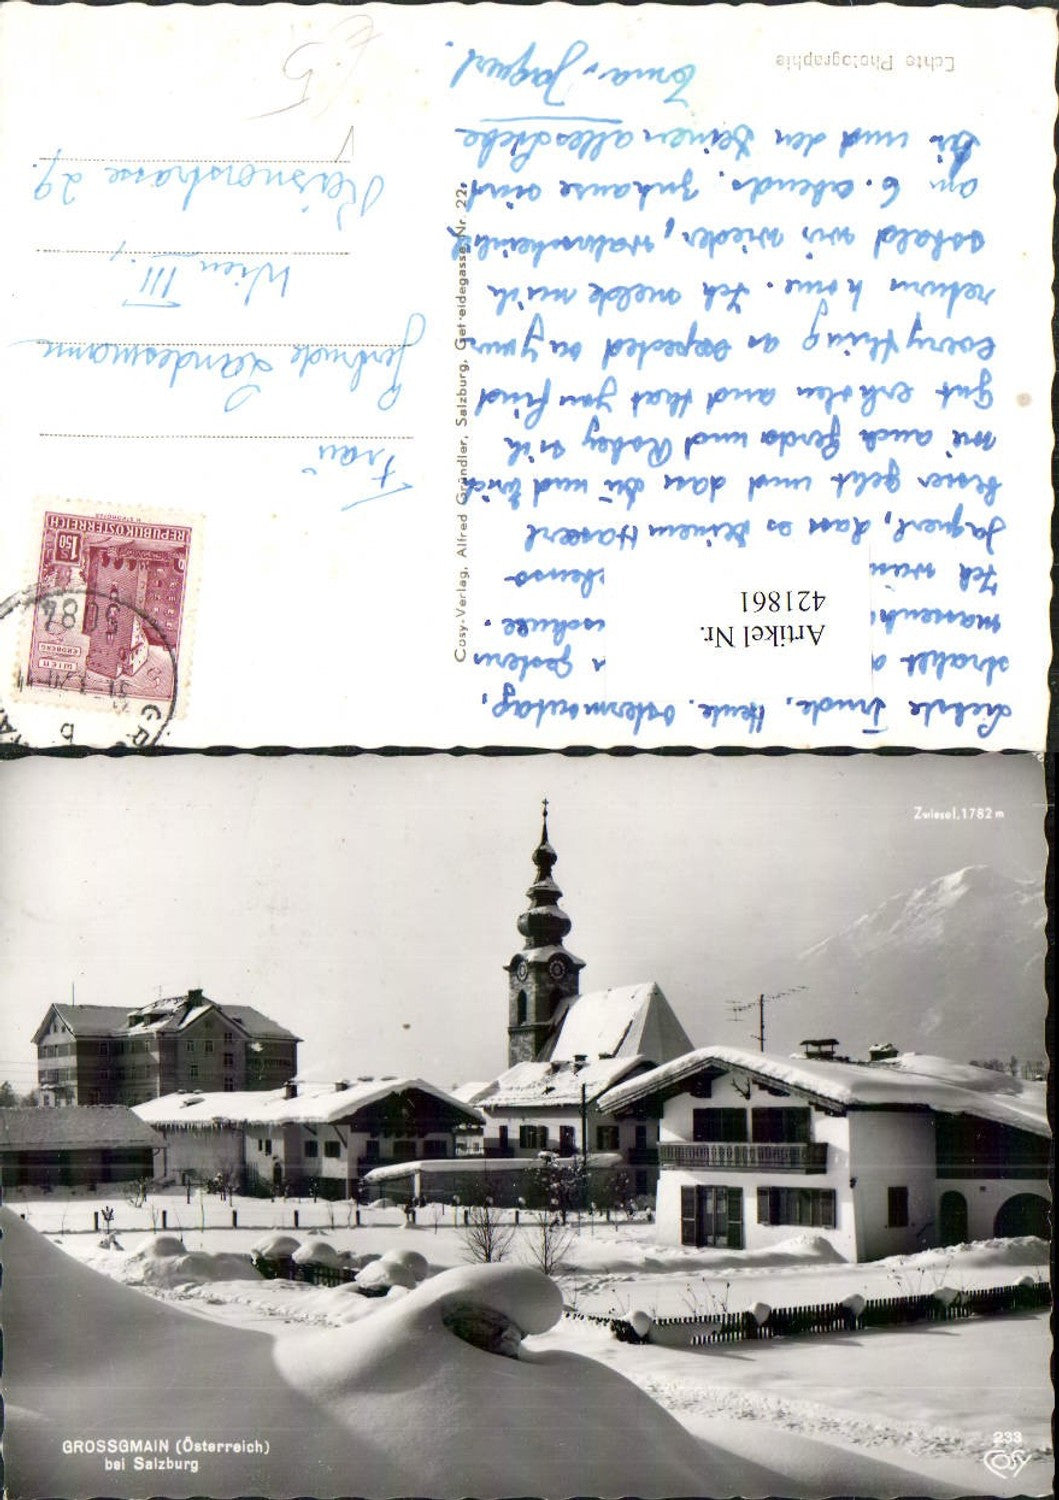 Liebste Trude. Heute. Ostermontag,
strahlt
gestern
massenh
Ich
ebenso
Jaguerl, dass es Deinem Haserl
besser geht und dass Du und Erich
wie auch Gerda und Robby sich
gut erholen and that you find
everything as expected on your
return home. Ich melde mich
sobald wir wieder, wahrscheinlich
am 6. abends, zuhause sind.
Dir und den Deinen alles Liebe
Jaguerl.
Echte Photographie
Cosy-Verlag, Alfred Gründler, Salzburg, Getreidegasse Nr. 22.
Frau
Gertrude Landesmann
Wien III.,
Reisnerstrasse 29.
REPUBLIK ÖSTERREICH
1.50
WIEN
ERDBERG
Artikel Nr.
421861
Zwiesel, 1782 m
GROSSGMAIN (Österreich)
bei Salzburg
233
COSY